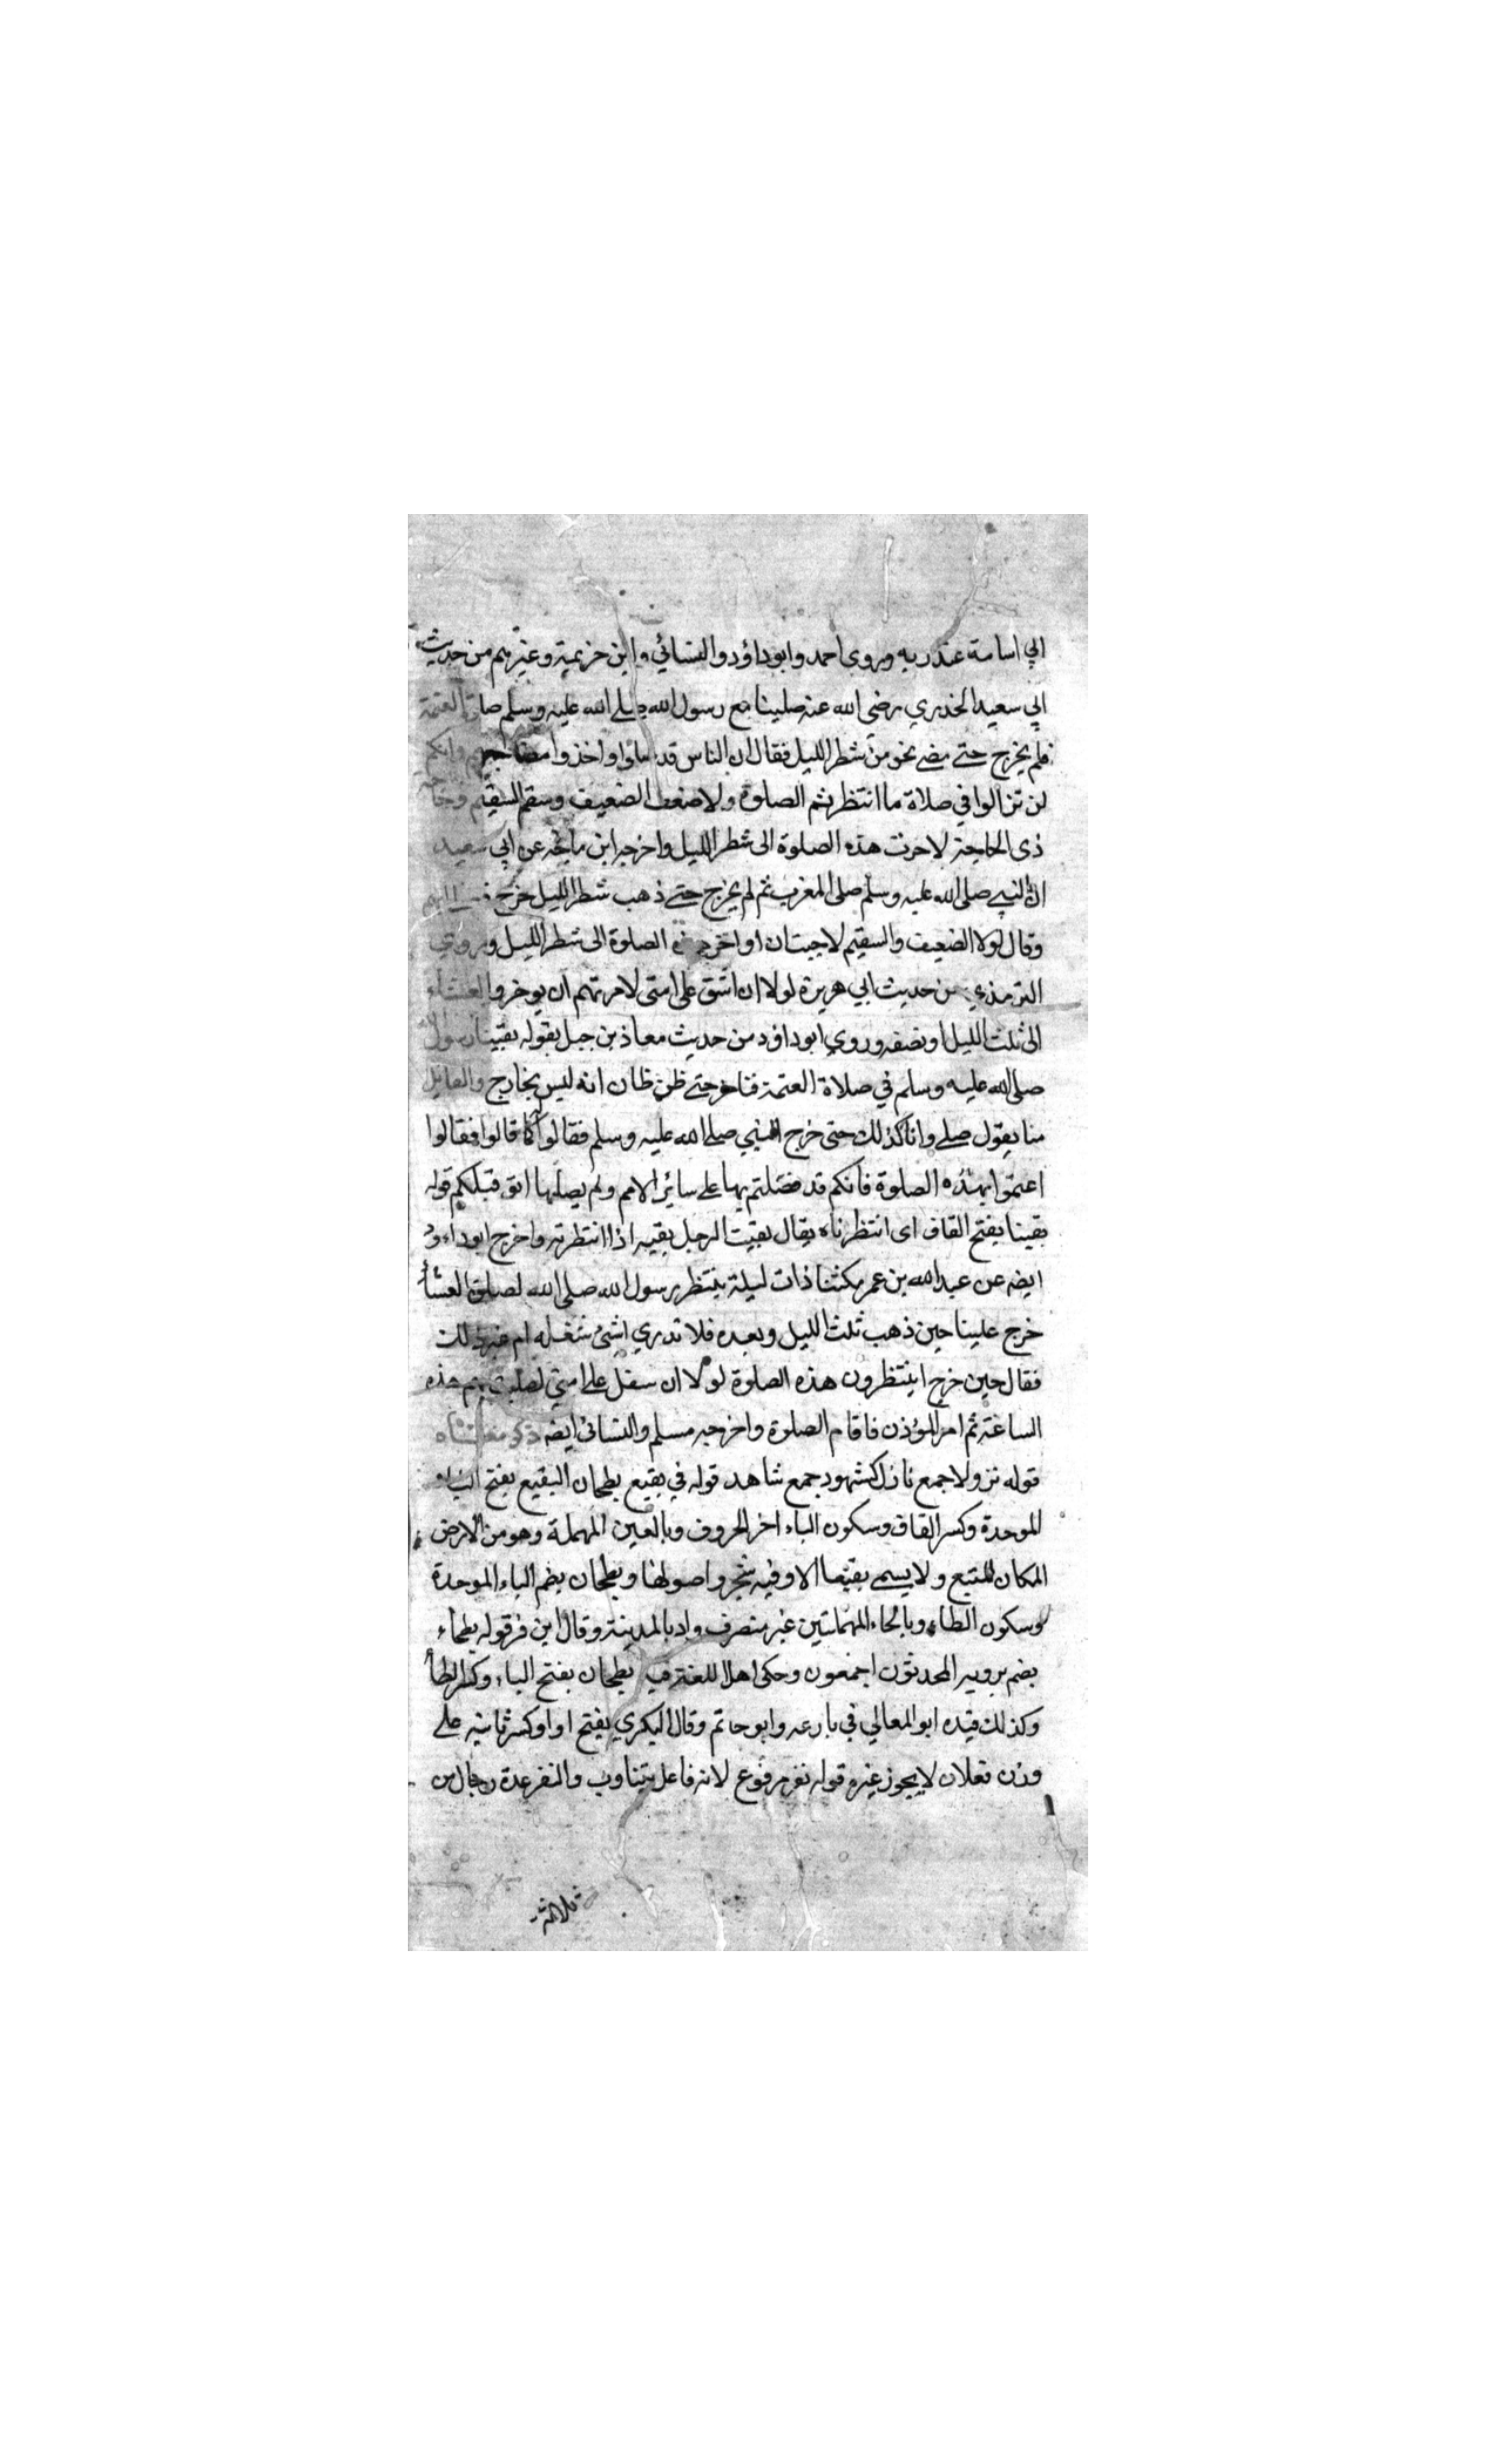 ابي اسامة عند ربه وروى احمد وابوداؤد والنسائي وابن خزيمة وغيرهم من حديث
ابي سعيد الخدري رضى الله عنه صلينا مع رسول الله صلى الله عليه وسلم صلاة العتمة
فلم يخرج حتى مضى نحو من شطر الليل فقال ان الناس قد صلوا واخذوا مضاجعهم وانكم
لن تزالوا في صلاة ما انتظرتم الصلوة ولا ضعف الضعيف وسقم السقيم وحاجة
ذى الحاجة لاخرت هذه الصلوة الى شطر الليل واخرجه ابن ماجه عن ابي سعيد
ان النبي صلى الله عليه وسلم صلى المغرب ثم لم يخرج حتى ذهب شطر الليل خرج
وقال لولا الضعيف والسقيم لاحببت ان اواخر هذه الصلوة الى شطر الليل وروى
الترمذي من حديث ابي هريرة لولا ان اشق على امتى لامرتهم ان يوخروا العشاء
الى ثلث الليل او نصفه وروى ابوداؤد من حديث معاذ بن جبل بقوله بقينا رسول الله
صلى الله عليه وسلم في صلاة العتمة فتاخر حتى ظن ظان انه ليس بخارج والقايل
منا يقول صلى وانا كذلك حتى خرج النبي صلى الله عليه وسلم فقالوا له كما قالوا فقالوا
اعتموا بهذه الصلوة فانكم قد فضلتم بها على سائر الامم ولم يصلها امة قبلكم قوله
بقينا بفتح القاف اى انتظرناه يقال بقيت الرجل بقيه اذا انتظرته واخرج ابوداؤد
ايضه عن عبدالله بن عمر مكثنا ذات ليلة ينتظر رسول الله صلى الله لصلوة العشأ
خرج علينا حين ذهب ثلث الليل وبعده فلا ندري اشئ شغله ام غير ذلك
فقال حين خرج اينتظرون هذه الصلوة لولا ان سفل على امتي لصليت بهم هذه
الساعة ثم امر المؤذن فاقام الصلوة واخرجه مسلم والنسائى ايضه ذكر معناه
قوله نزولا جمع نازل كشهود جمع شاهد قوله في بقيع بطحان البقيع بفتح الباء
الموحدة وكسر القاف وسكون الياء اخر الحروف وبالعين المهملة وهو من الارض
المكان المتسع ولا يسمى بقيعا الا وفيه شجر واصولها وبطحان بضم الباء الموحدة
وسكون الطاء وبالحاء المهملتين غير منصرف واد بالمدينة وقال ابن قرقول بطحاء
بضم يرويه المحدثون اجمعون وحكى اهل اللغة فيه بطحان بفتح الباء وكسر الطأ
وكذلك قيده ابو المعالي في بارعه وابو حاتم وقال البكري بفتح اوله وكسر ثانيه على
وزن فعلان لا يجوز غيره قوله نفر مرفوع لانه فاعل يتناوب والنفر عدة رجال من
ثلاثة